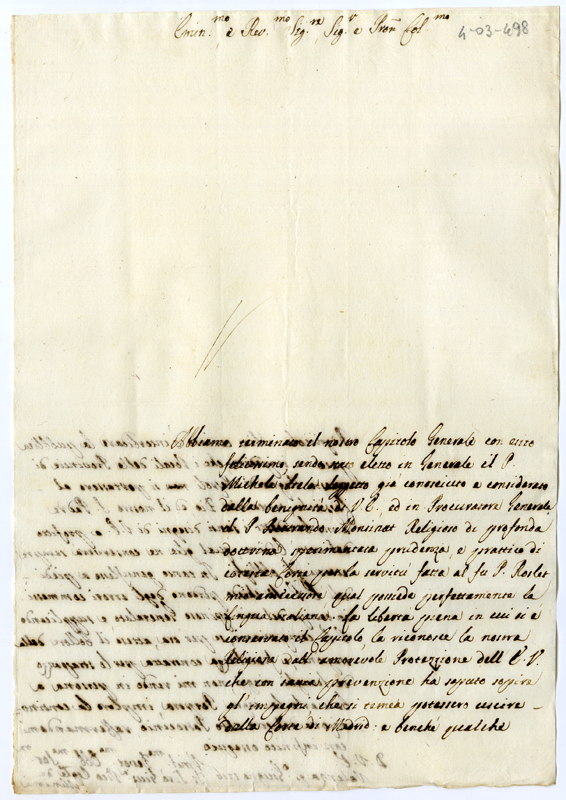 Emin.mo e Rev.mo Sig.re Sig.r e Pron Col.mo
4-03-498
Abbiamo terminato il nostro Capitolo Generale con esito
felicissimo, sendo stato eletto in Generale il P.
Michele soggetto già conosciuto e considerato
dalla benignità di V.E., ed in Procuratore Generale
il P. Bertrando Monsinat Religioso di profonda
dottrina, sperimentata prudenza, e prattico di
cotesta Corte per la servitù fatta al fu P. Roslet
mio antecessore qual possiede perfettamente la
lingua italiana. La libertà piena in cui si è
conservato il Capitolo la riconosce la nostra
Religione dall' amorevole Protezione dell' E.V.
che con saura prevenzione ha saputo sopire
gl' impegni che si temea potessero uscire
dalla Corte di Madrid: e benché qualche